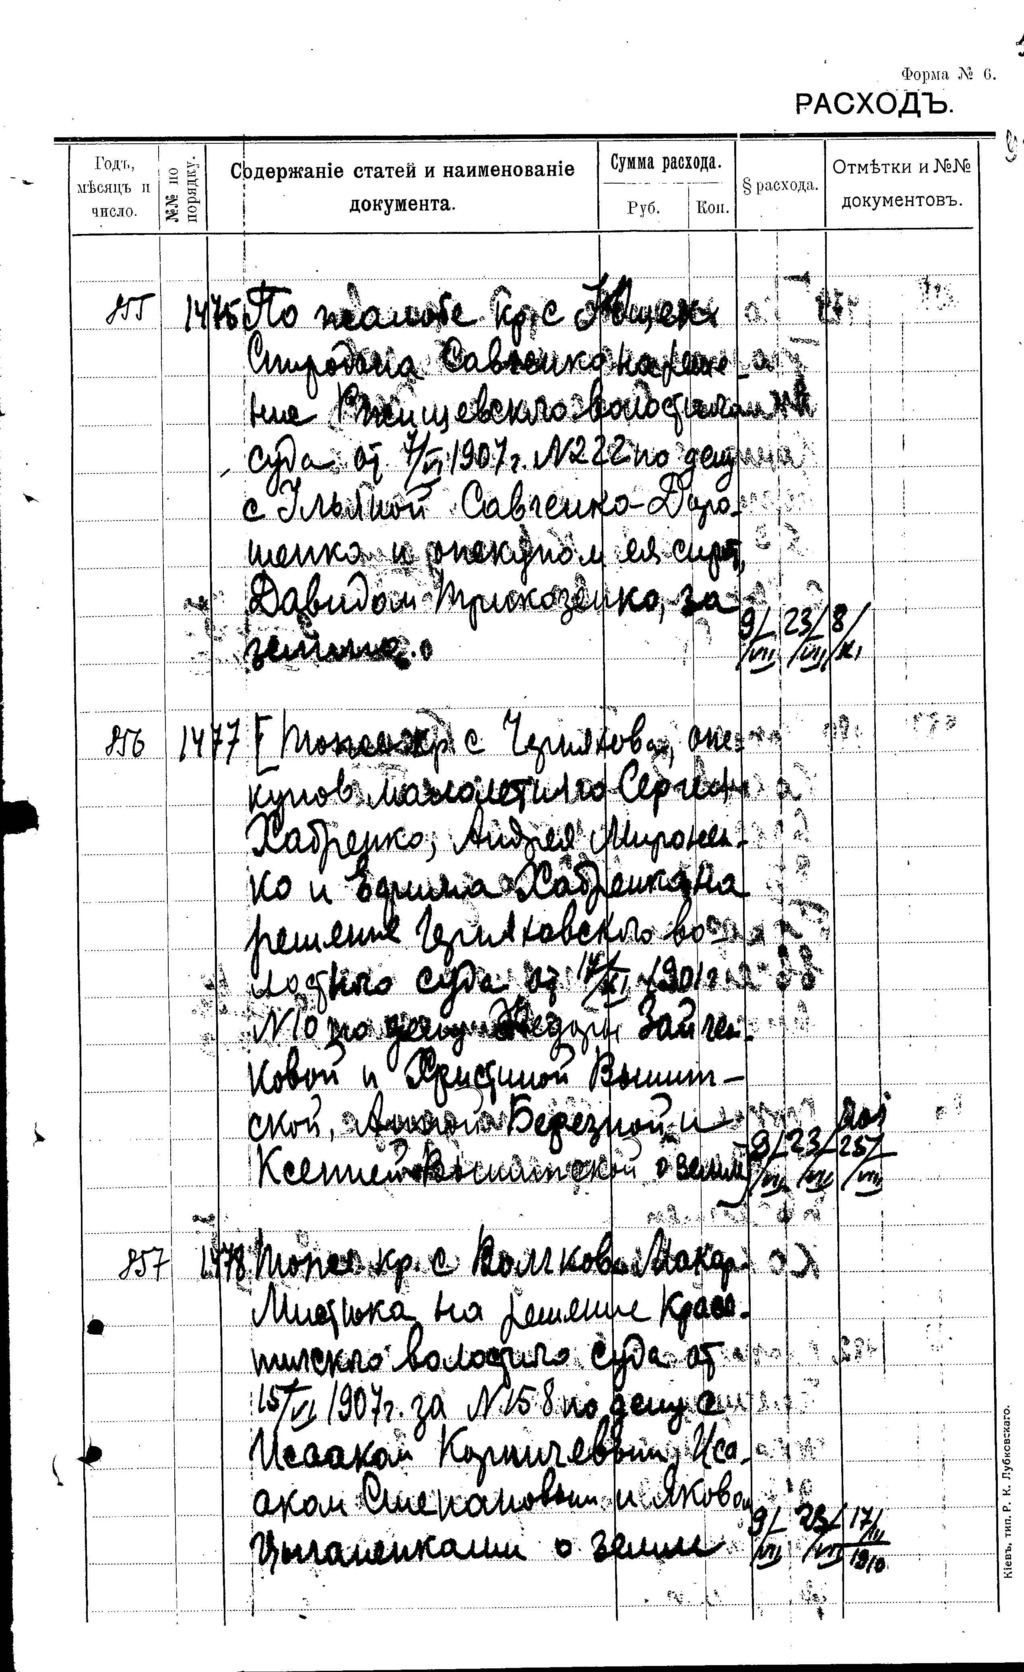 Форма № 6.
РАСХОДЪ.
Годъ, мѣсяцъ и число.
№№ по порядку.
Содержаніе статей и наименованіе документа.
Сумма расхода.
Руб.
Коп.
§ расхода.
Отмѣтки и №№ документовъ.
855 1475 По жалобе кр. с Ющек
Спиридона Савченко на реше
ние Ржищевского волостного
суда от 7/VI 1907 г. N 222 по делу
с Ульяной Савченко-Доро-
шенко и опекуном ея сирот,
Давидом Трикозенко, за
землю.
9/VII 23/VII 8/XI
856 1477 [ Тоже кр с Черняхова, опе
кунов малолетнего Сергея
Хабренко, Андрея Миронен-
ко и Ефима Хабренко, на
решение Черняховского во-
лостного суда от 14/XI 1901 г
N 10 по делу Федоры Зайчен-
ковой и Христиной Вышит-
ской, Анной Березной и
Ксенией Вышитской о земле]
9/VII 23/VII 25/VII
857 1478 Тоже кр. с Волчкова Макар
на решение Красо-
тинского волостного суда от
15/VI 1907 г. за N 158 по делу с
Исааком Корничевым, Иса-
аком Степановым и Яковом
Цыганенками о земле
9/VII 23/VII 17/III 1910
Кіевъ, тип. Р. К. Лубковскаго.